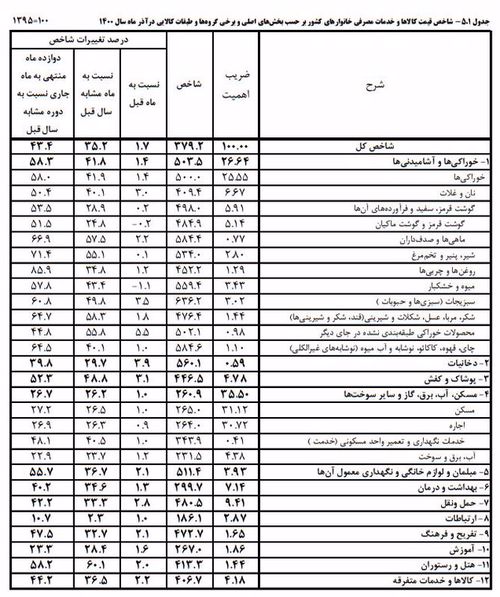 جدول ۵.۱- شاخص قیمت کالاها و خدمات مصرفی خانوارهای کشور بر حسب بخش‌های اصلی و برخی گروه‌ها و طبقات کالایی درآذر ماه سال ۱۴۰۰ ۱۳۹۵=۱۰۰
شرح ضریب اهمیت شاخص درصد تغییرات شاخص
نسبت به ماه قبل نسبت به ماه مشابه سال قبل دوازده ماه منتهی به ماه جاری نسبت به دوره مشابه سال قبل
شاخص کل ۱۰۰.۰۰ ۳۷۹.۲ ۱.۷ ۳۵.۲ ۴۳.۴
۱- خوراکی‌ها و آشامیدنی‌ها ۲۶.۶۴ ۵۰۳.۵ ۱.۴ ۴۱.۸ ۵۸.۳
خوراکی‌ها ۲۵.۵۵ ۵۰۰.۰ ۱.۴ ۴۱.۹ ۵۸.۰
نان و غلات ۶.۶۷ ۴۰۹.۴ ۳.۰ ۴۰.۱ ۵۰.۴
گوشت قرمز، سفید و فرآورده‌های آن‌ها ۵.۹۱ ۴۹۸.۰ ۰.۲ ۲۸.۹ ۵۳.۵
گوشت قرمز و گوشت ماکیان ۵.۱۴ ۴۸۴.۹ -۰.۲ ۲۴.۸ ۵۱.۵
ماهی‌ها و صدف‌داران ۰.۷۷ ۵۸۴.۴ ۲.۲ ۵۷.۵ ۶۶.۹
شیر، پنیر و تخم‌مرغ ۲.۸۰ ۵۳۴.۰ ۰.۱ ۵۵.۱ ۷۱.۴
روغن‌ها و چربی‌ها ۱.۲۹ ۴۵۲.۲ ۱.۲ ۳۴.۸ ۸۵.۹
میوه و خشکبار ۳.۴۳ ۵۵۹.۴ -۱.۱ ۴۳.۴ ۵۷.۸
سبزیجات (سبزی‌ها و حبوبات ) ۳.۰۲ ۶۳۶.۲ ۳.۵ ۴۹.۸ ۶۰.۸
شکر، مربا، عسل، شکلات و شیرینی(قند، شکر و شیرینی‌ها) ۱.۴۴ ۴۷۶.۴ ۱.۸ ۵۸.۳ ۶۴.۷
محصولات خوراکی طبقه‌بندی نشده در جای دیگر ۰.۹۸ ۵۰۲.۱ ۵.۵ ۵۵.۸ ۴۴.۸
چای، قهوه، کاکائو، نوشابه و آب میوه (نوشابه‌های غیرالکلی) ۱.۱۰ ۵۸۴.۶ ۱.۰ ۴۰.۱ ۶۴.۵
۲- دخانیات ۰.۵۹ ۵۶۰.۱ ۳.۹ ۲۹.۷ ۳۹.۸
۳- پوشاک و کفش ۴.۷۸ ۴۴۶.۵ ۳.۱ ۴۸.۸ ۵۲.۳
۴- مسکن، آب، برق، گاز و سایر سوخت‌ها ۳۵.۵۰ ۲۶۰.۹ ۱.۰ ۲۶.۲ ۲۶.۷
مسکن ۳۱.۱۲ ۲۶۵.۰ ۱.۰ ۲۶.۵ ۲۷.۲
اجاره ۳۰.۷۲ ۲۶۴.۰ ۰.۹ ۲۶.۳ ۲۶.۹
خدمات نگهداری و تعمیر واحد مسکونی (خدمت ) ۰.۴۱ ۳۴۳.۹ ۱.۰ ۴۰.۵ ۴۸.۱
آب، برق و سوخت ۴.۳۸ ۲۳۱.۵ ۱.۲ ۲۳.۷ ۲۲.۹
۵- مبلمان و لوازم خانگی و نگهداری معمول آن‌ها ۳.۹۳ ۵۱۱.۴ ۲.۱ ۳۶.۷ ۵۵.۷
۶- بهداشت و درمان ۷.۱۴ ۲۹۹.۷ ۱.۳ ۳۴.۶ ۴۰.۲
۷- حمل ونقل ۹.۴۱ ۴۸۰.۵ ۲.۸ ۳۳.۳ ۴۲.۲
۸- ارتباطات ۲.۸۷ ۱۸۶.۱ ۱.۰ ۲.۳ ۱۰.۷
۹- تفریح و فرهنگ ۱.۶۵ ۴۷۲.۷ ۲.۱ ۳۲.۷ ۴۷.۵
۱۰- آموزش ۱.۸۶ ۲۶۷.۰ ۱.۶ ۲۸.۴ ۲۳.۳
۱۱- هتل و رستوران ۱.۴۴ ۴۱۳.۳ ۲.۰ ۶۰.۱ ۵۸.۲
۱۲- کالاها و خدمات متفرقه ۴.۱۸ ۴۰۶.۷ ۲.۲ ۳۶.۵ ۴۴.۲